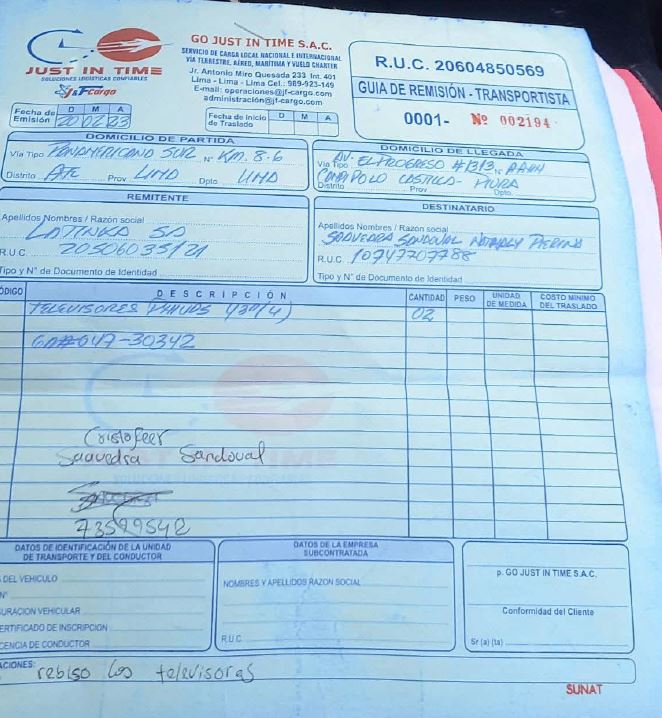 JUST IN TIME
SOLUCIONES LOGISTICAS CONFIABLES
J&Fcargo
GO JUST IN TIME S.A.C.
SERVICIO DE CARGA LOCAL NACIONAL E INTERNACIONAL
VÍA TERRESTRE, AÉREO, MARÍTIMA Y VUELO CHARTER
Jr. Antonio Miro Quesada 233 Int. 401
Lima - Lima - Lima Cel.: 989-923-149
E-mail: operaciones@jf-cargo.com
administración@jf-cargo.com
R.U.C. 20604850569
GUIA DE REMISIÓN - TRANSPORTISTA
0001- Nº 002194
Fecha de Emisión D M A
20 02 23
Fecha de Inicio de Traslado D M A
DOMICILIO DE PARTIDA
Vía Tipo PANAMERICANA SUR N° KM. 8.6
Distrito ATE Prov LIMA Dpto LIMA
DOMICILIO DE LLEGADA
Vía Tipo AV. EL PROGRESO #1313, AAHH
CAMPO POLO CASTILLO - PIURA
Distrito Prov Dpto.
REMITENTE
Apellidos Nombres / Razón social
LATINKA SA
R.U.C. 20506035121
Tipo y N° de Documento de Identidad
DESTINATARIO
Apellidos Nombres / Razón social
SAAVEDRA SANDOVAL
R.U.C. 10747707788
Tipo y N° de Documento de Identidad
CÓDIGO DESCRIPCIÓN CANTIDAD PESO UNIDAD DE MEDIDA COSTO MINIMO DEL TRASLADO
TELEVISORES 02
047-30342
Cristofeer
Saavedra Sandoval
73599542
DATOS DE IDENTIFICACIÓN DE LA UNIDAD
DE TRANSPORTE Y DEL CONDUCTOR
DEL VEHICULO
N°
CERTIFICADO DE INSCRIPCION
LICENCIA DE CONDUCTOR
DATOS DE LA EMPRESA
SUBCONTRATADA
NOMBRES Y APELLIDOS RAZON SOCIAL
R.U.C
p. GO JUST IN TIME S.A.C.
Conformidad del Cliente
Sr (a) (ta)
ACIONES: rebiso los televisores
SUNAT